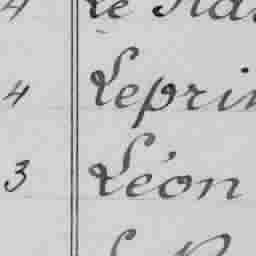 4
4 Lepri
3 Léon